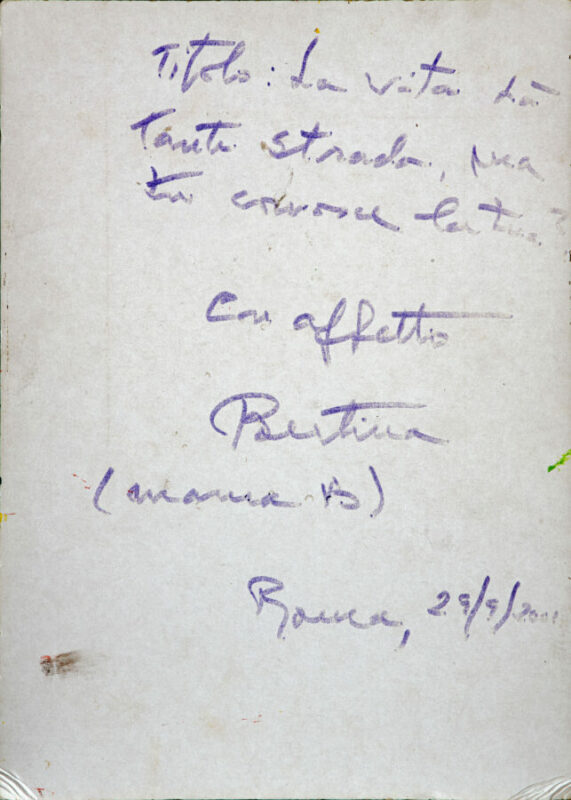 Titolo: La vita dà
tante strada, ma
tu conosce la tua?
Con affetto
Bertina
(mama B)
Roma, 29/9/200